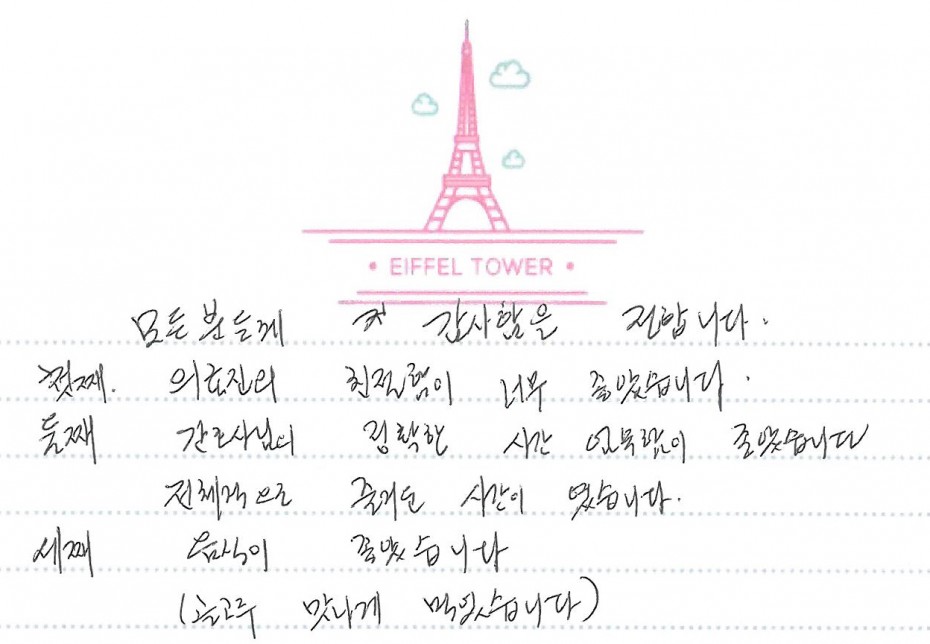 • EIFFEL TOWER •
모든분들께 감사함을 전합니다.
첫째. 의료진의 친절함이 너무 좋았습니다.
둘째 간호사님의 정확한 시간 업무력이 좋았습니다
전체적으로 즐거운 시간이 였습니다.
세째 음식이 좋았습니다
(골고루 맛나게 먹었습니다)